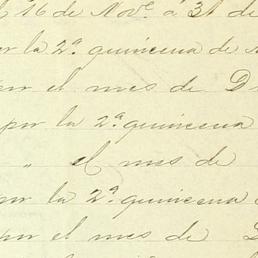 16 de Nov.e a 31 de
por la 2.a quincena de
por el mes de D
por la 2.a quincena
" el mes de
por la 2.a quincena
por el mes de